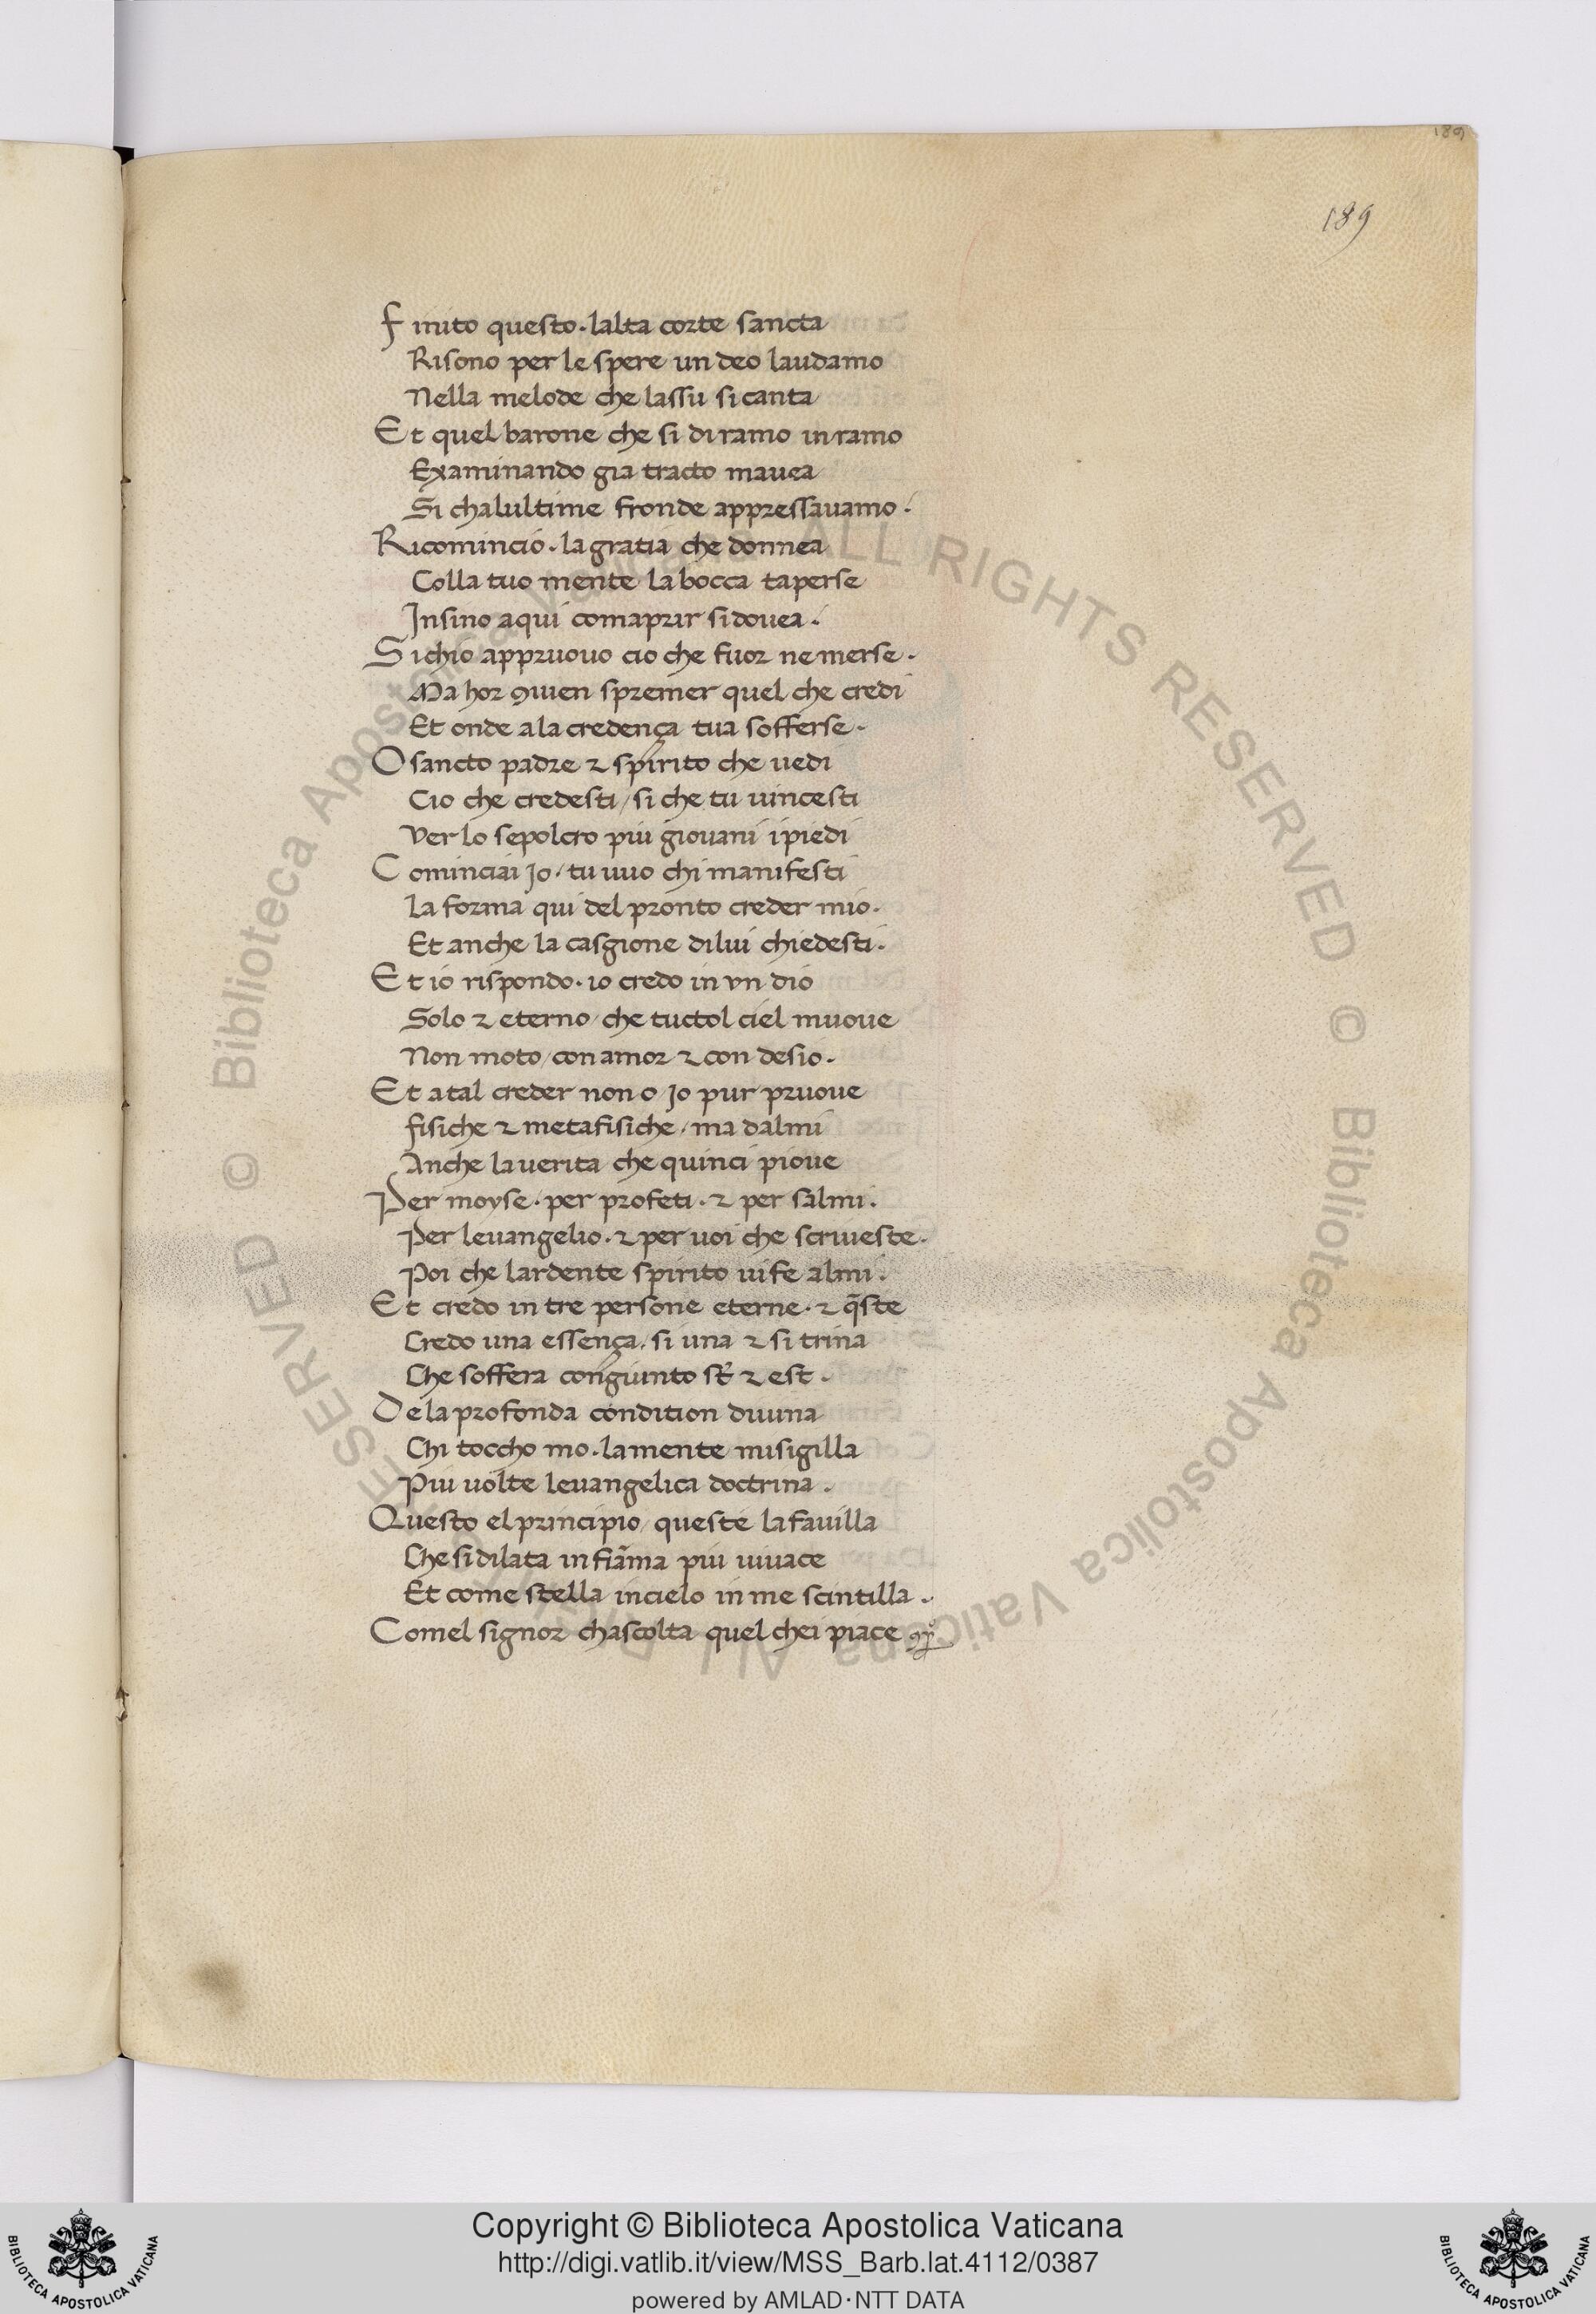 189
189
Finito questo · lalta corte sancta
Risono per le spere un deo laudamo
Nella melode che lassu si canta
Et quel barone che si di ramo in ramo
Examinando gia tracto mauea
Si chalultime fronde appressauamo ·
Ricomincio · la gratia che donnea
Colla tuo mente la bocca taperse
Insino aqui comaprir si douea ·
Sichio appruouo cio che fuor ne merse ·
Ma hor ꝯuien spremer quel che credi
Et onde a la credença tua sofferse ·
O sancto padre ⁊ spirito che uedi
Cio che credesti / si che tu uincesti
Ver lo sepolcro piu giouani i piedi
Cominciai io / tu uuo chi manifesti
La forma qui del pronto creder mio ·
Et anche la casgione di lui chiedesti ·
Et io rispondo · io credo in vn dio
Solo ⁊ eterno / che tuctol ciel muoue
Non moto / con amor ⁊ con desio ·
Et a tal creder non o io pur pruoue
fisiche ⁊ metafisiche / ma dalmi
Anche la uerita che quinci pioue
Per moyse · per profeti · ⁊ per salmi ·
Per leuangelio · ⁊ per uoi che scriueste ·
Poi che lardente spirito ui fe almi ·
Et credo in tre persone eterne · ⁊ q̄ste
Credo una essença / si una ⁊ si trina
Che soffera congiunto st̄ ⁊ est ·
De la profonda condition diuina
Chi toccho mo · la mente mi sigilla
Piu uolte leuangelica doctrina ·
Questo el principio / queste la fauilla
Che si dilata in fiãma piu uiuace
Et come stella in cielo in me scintilla ·
Comel signor chascolta quel chei piace
© Biblioteca Apostolica Vaticana ALL RIGHTS RESERVED © Biblioteca Apostolica Vaticana ALL RIGHTS RESERVED
Copyright © Biblioteca Apostolica Vaticana
http://digi.vatlib.it/view/MSS_Barb.lat.4112/0387
powered by AMLAD·NTT DATA
BIBLIOTECA APOSTOLICA VATICANA
BIBLIOTECA APOSTOLICA VATICANA